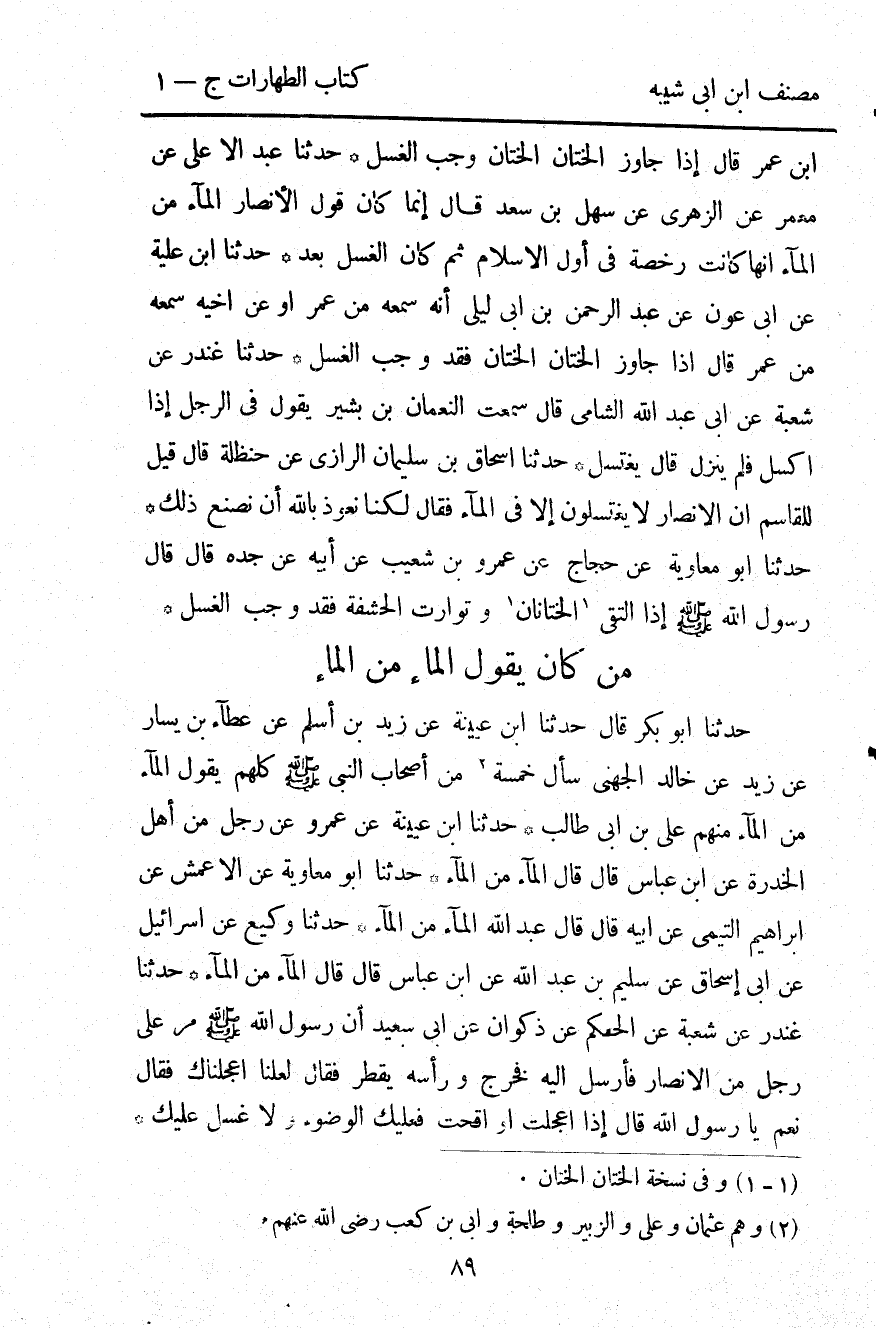 مصنف ابن ابى شيبه كتاب الطهارات ج — ١
ابن عمر قال إذا جاوز الختان الختان وجب الغسل * حدثنا عبد الا على عن
معمر عن الزهرى عن سهل بن سعد قــال إنما كان قول الأنصار المآء من
المآء انها كانت رخصة فى أول الاسلام ثم كان الغسل بعد * حدثنا ابن علية
عن ابى عون عن عبد الرحمن بن ابى ليلى أنه سمعه من عمر او عن اخيه سمعه
من عمر قال اذا جاوز الختان الختان فقد و جب الغسل * حدثنا غندر عن
شعبة عن ابى عبد الله الشامى قال سمعت النعمان بن بشير يقول فى الرجل إذا
اكسل فلم ينزل قال يغتسل * حدثنا اسحاق بن سليمان الرازى عن حنظلة قال قيل
للقاسم ان الانصار لا يغتسلون إلا فى المآء فقال لكنا نعوذ بالله أن نصنع ذلك *
حدثنا ابو معاوية عن حجاج عن عمرو بن شعيب عن أبيه عن جده قال قال
رسول الله ﷺ إذا التقى ١الختانان١ و توارت الحشفة فقد و جب الغسل *
من كان يقول الماء من الماء
حدثنا ابو بكر قال حدثنا ابن عيينة عن زيد بن أسلم عن عطآء بن يسار
عن زيد عن خالد الجهنى سأل خمسة ٢ من أصحاب النبى ﷺ كلهم يقول المآء
من المآء منهم على بن ابى طالب * حدثنا ابن عيينة عن عمرو عن رجل من أهل
الخدرة عن ابن عباس قال قال المآء من المآء * حدثنا ابو معاوية عن الاعمش عن
ابراهيم التيمى عن ابيه قال قال عبد الله المآء من المآء * حدثنا وكيع عن اسرائيل
عن ابى إسحاق عن سليم بن عبد الله عن ابن عباس قال قال المآء من المآء * حدثنا
غندر عن شعبة عن الحكم عن ذكوان عن ابى سعيد أن رسول الله ﷺ مر على
رجل من الانصار فأرسل اليه فخرج و رأسه يقطر فقال لعلنا اعجلناك فقال
نعم يا رسول الله قال إذا اعجلت او اقحت فعليك الوضوء و لا غسل عليك *
(١ - ١) و فى نسخة الختان الختان .
(٢) و هم عثمان و على و الزبير و طلحة و ابى بن كعب رضى الله عنهم.
٨٩